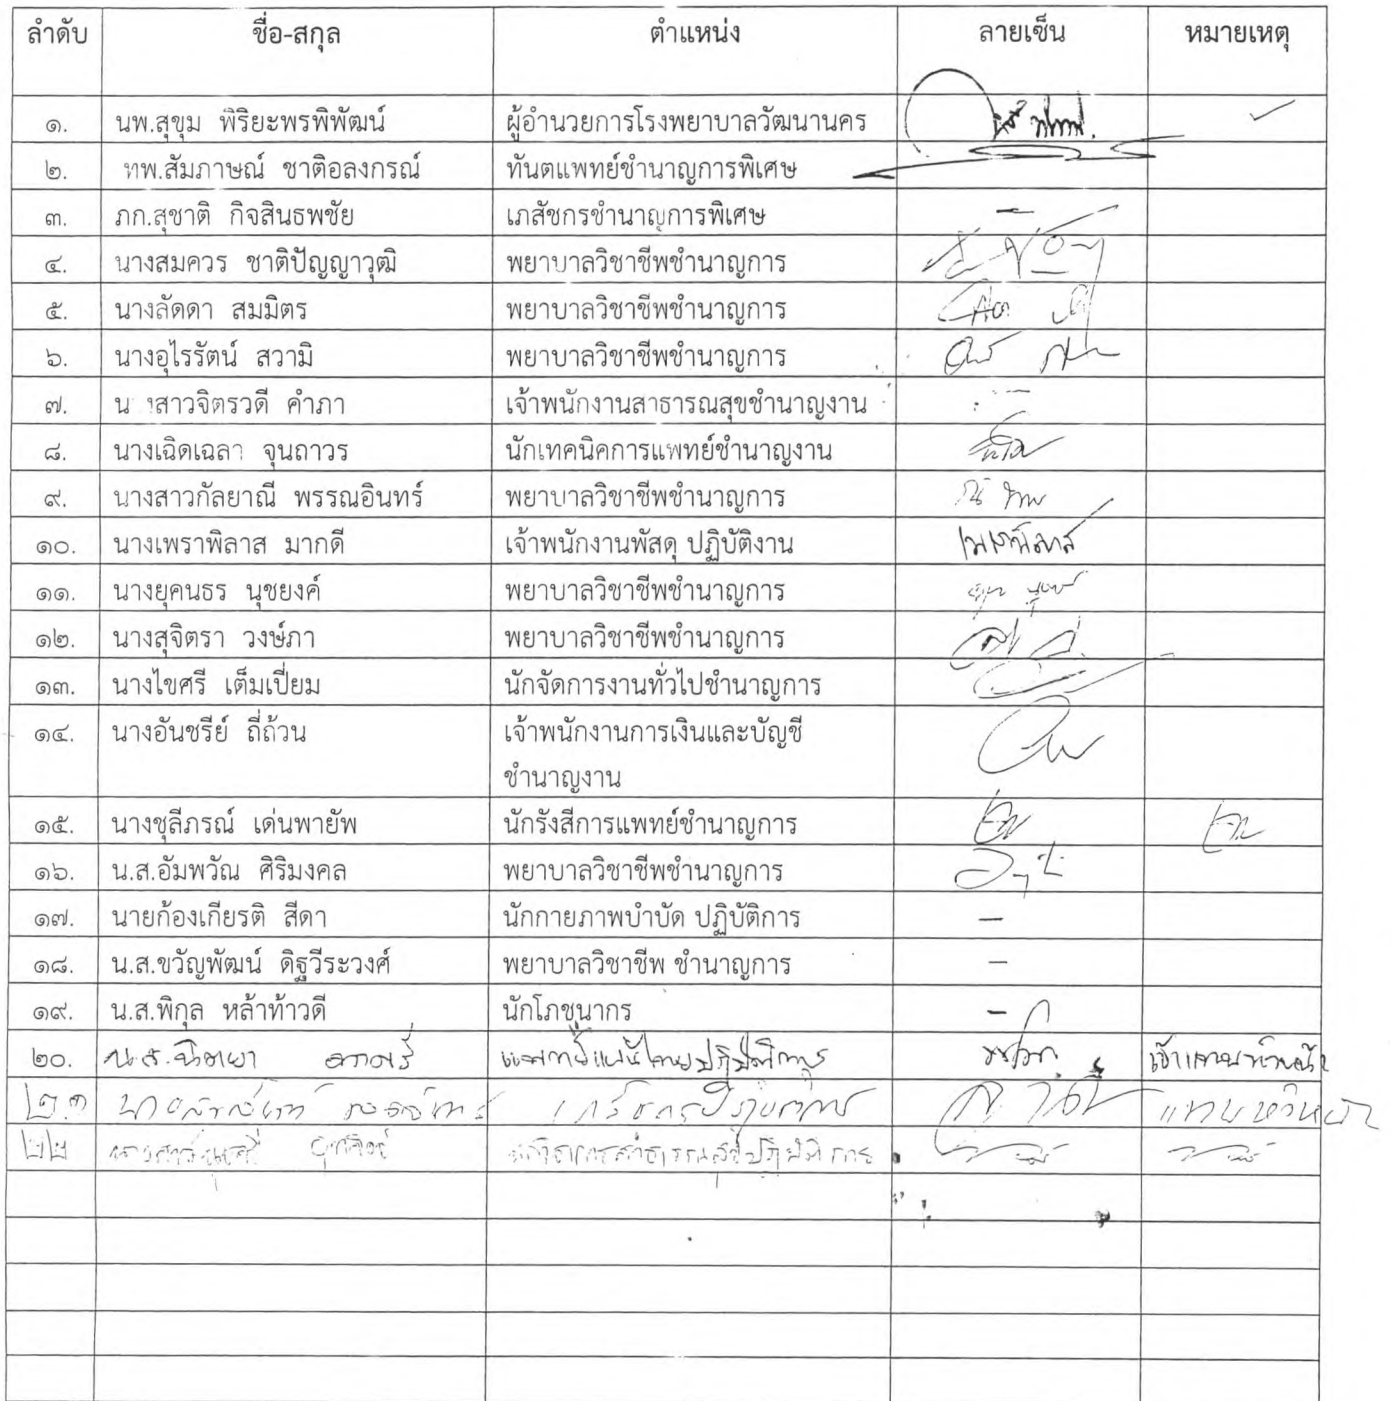 ลำดับ ชื่อ-สกุล ตำแหน่ง ลายเซ็น หมายเหตุ
๑. นพ.สุขุม พิริยะพรพิพัฒน์ ผู้อำนวยการโรงพยาบาลวัฒนานคร
๒. ทพ.สัมภาษณ์ ชาติอลงกรณ์ ทันตแพทย์ชำนาญการพิเศษ
๓. ภก.สุชาติ กิจสินธพชัย เภสัชกรชำนาญการพิเศษ -
๔. นางสมควร ชาติปัญญาวุฒิ พยาบาลวิชาชีพชำนาญการ
๕. นางลัดดา สมมิตร พยาบาลวิชาชีพชำนาญการ
๖. นางอุไรรัตน์ สวามิ พยาบาลวิชาชีพชำนาญการ
๗. นางสาวจิตรวดี คำภา เจ้าพนักงานสาธารณสุขชำนาญงาน -
๘. นางเฉิดเฉลา จุนถาวร นักเทคนิคการแพทย์ชำนาญงาน
๙. นางสาวกัลยาณี พรรณอินทร์ พยาบาลวิชาชีพชำนาญการ
๑๐. นางเพราพิลาส มากดี เจ้าพนักงานพัสดุ ปฏิบัติงาน เพราพิลาส
๑๑. นางยุคนธร นุชยงค์ พยาบาลวิชาชีพชำนาญการ
๑๒. นางสุจิตรา วงษ์ภา พยาบาลวิชาชีพชำนาญการ
๑๓. นางไขศรี เต็มเปี่ยม นักจัดการงานทั่วไปชำนาญการ
๑๔. นางอันชรีย์ ถี่ถ้วน เจ้าพนักงานการเงินและบัญชี
ชำนาญงาน
๑๕. นางชุลีภรณ์ เด่นพายัพ นักรังสีการแพทย์ชำนาญการ
๑๖. น.ส.อัมพวัณ ศิริมงคล พยาบาลวิชาชีพชำนาญการ
๑๗. นายก้องเกียรติ สีดา นักกายภาพบำบัด ปฏิบัติการ -
๑๘. น.ส.ขวัญพัฒน์ ดิฐวีระวงศ์ พยาบาลวิชาชีพ ชำนาญการ -
๑๙. น.ส.พิกุล หล้าท้าวดี นักโภชนากร -
๒๐. น.ส.นิตยา แพทย์แผนไทยปฏิบัติการ
๒๑ เภสัชกรปฏิบัติการ แทนหัวหน้า
๒๒ นางสาว นักวิชาการสาธารณสุขปฏิบัติการ